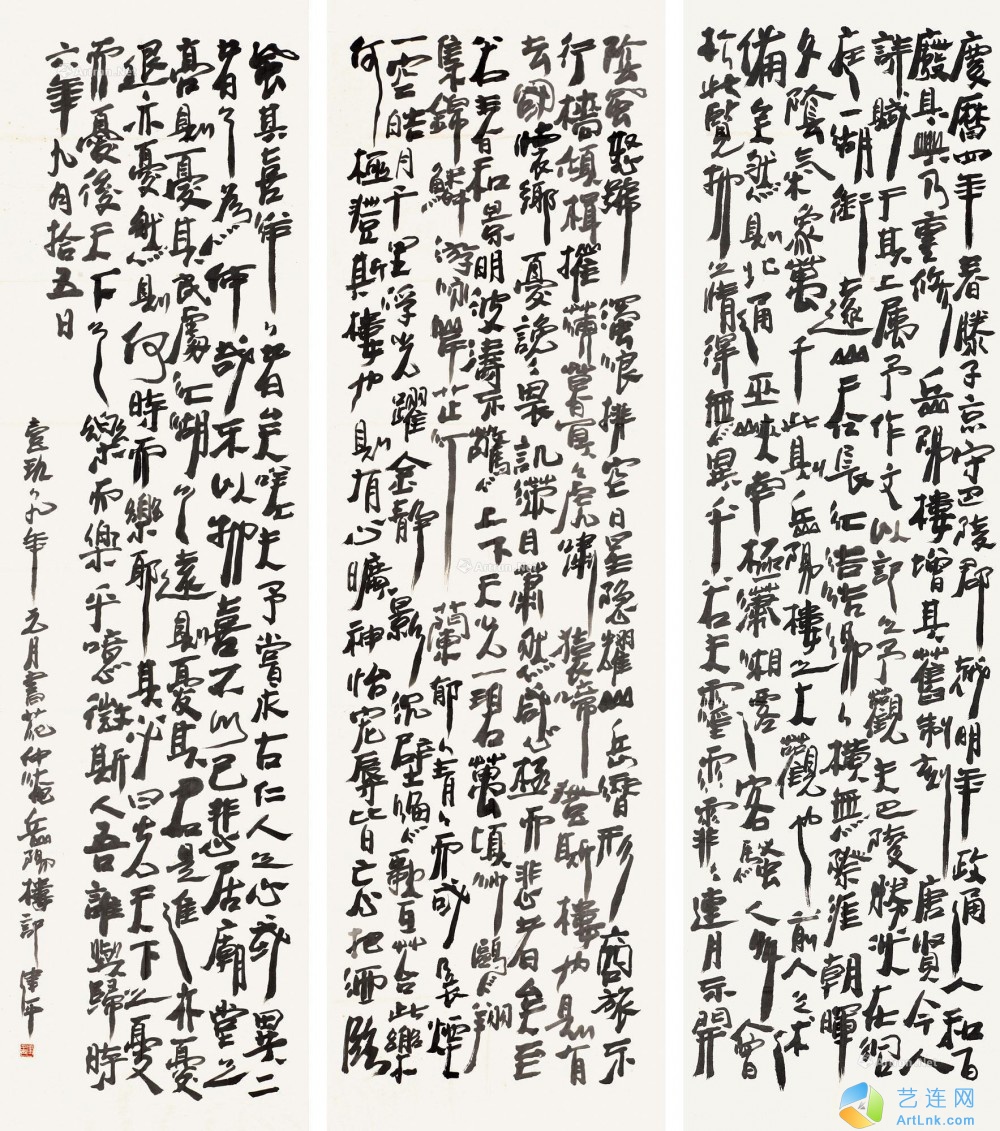 慶曆四年春滕子京守巴陵郡越明年政通人和百
廢具興乃重修岳陽樓增其舊制刻唐賢今人
詩賦于其上屬予作文以記之予觀夫巴陵勝狀在洞
庭一湖銜遠山吞長江浩浩湯湯橫無際涯朝暉
夕陰氣象萬千此則岳陽樓之大觀也前人之述
備矣然則北通巫峽南極瀟湘遷客騷人多會
於此覽物之情得無異乎若夫霪雨霏霏連月不開
陰風怒號濁浪排空日星隱耀山岳潛形商旅不
行檣傾楫摧薄暮冥冥虎嘯猿啼登斯樓也則有
去國懷鄉憂讒畏譏滿目蕭然感極而悲者矣至
若春和景明波濤不驚上下天光一碧萬頃沙鷗翔
集錦鱗游泳岸芷汀蘭郁郁青青而或長煙
一空皓月千里浮光躍金靜影沉璧漁歌互答此樂
何極登斯樓也則有心曠神怡寵辱皆忘把酒臨
風其喜洋洋者矣嗟夫予嘗求古仁人之心或異二
者之為何哉不以物喜不以己悲居廟堂之
高則憂其民處江湖之遠則憂其君是進亦憂
退亦憂然則何時而樂耶其必曰先天下之憂
而憂後天下之樂而樂乎噫微斯人吾誰與歸時
六年九月拾五日
年元月書范仲淹岳陽樓記
艺连网
ArtLnk.com